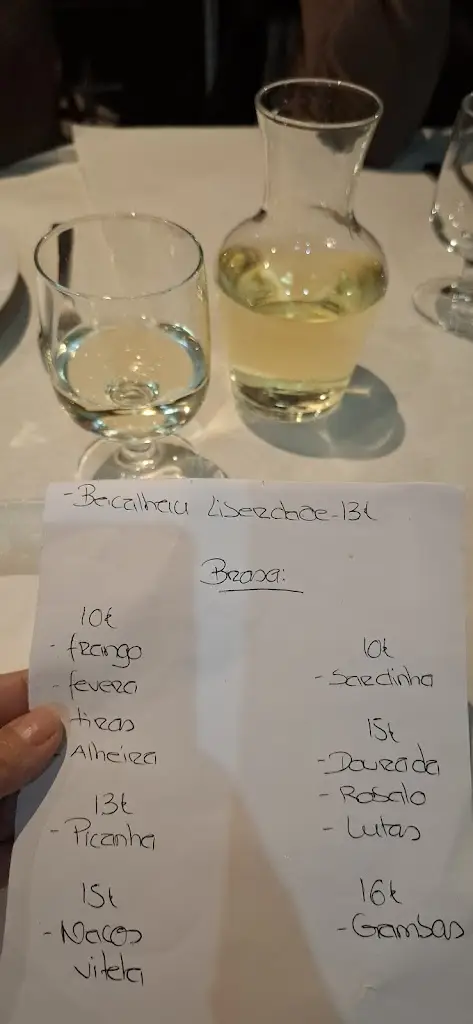 - Bacalhau Liberdade - 13€
Brasa:
10€
- frango
- fevera
- tiras
- Alheira
13€
- Picanha
15€
- Nacos
vitela
10€
- Sardinha
15€
- Dourada
- Robalo
- Lulas
16€
- Gambas